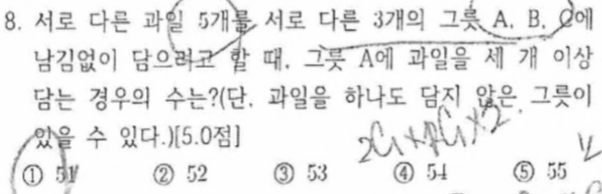 8. 서로 다른 과일 5개를 서로 다른 3개의 그릇 A, B, C에
남김없이 담으려고 할 때, 그릇 A에 과일을 세 개 이상
담는 경우의 수는?(단, 과일을 하나도 담지 않은 그릇이
있을 수 있다.)[5.0점]
① 51 ② 52 ③ 53 ④ 54 ⑤ 55